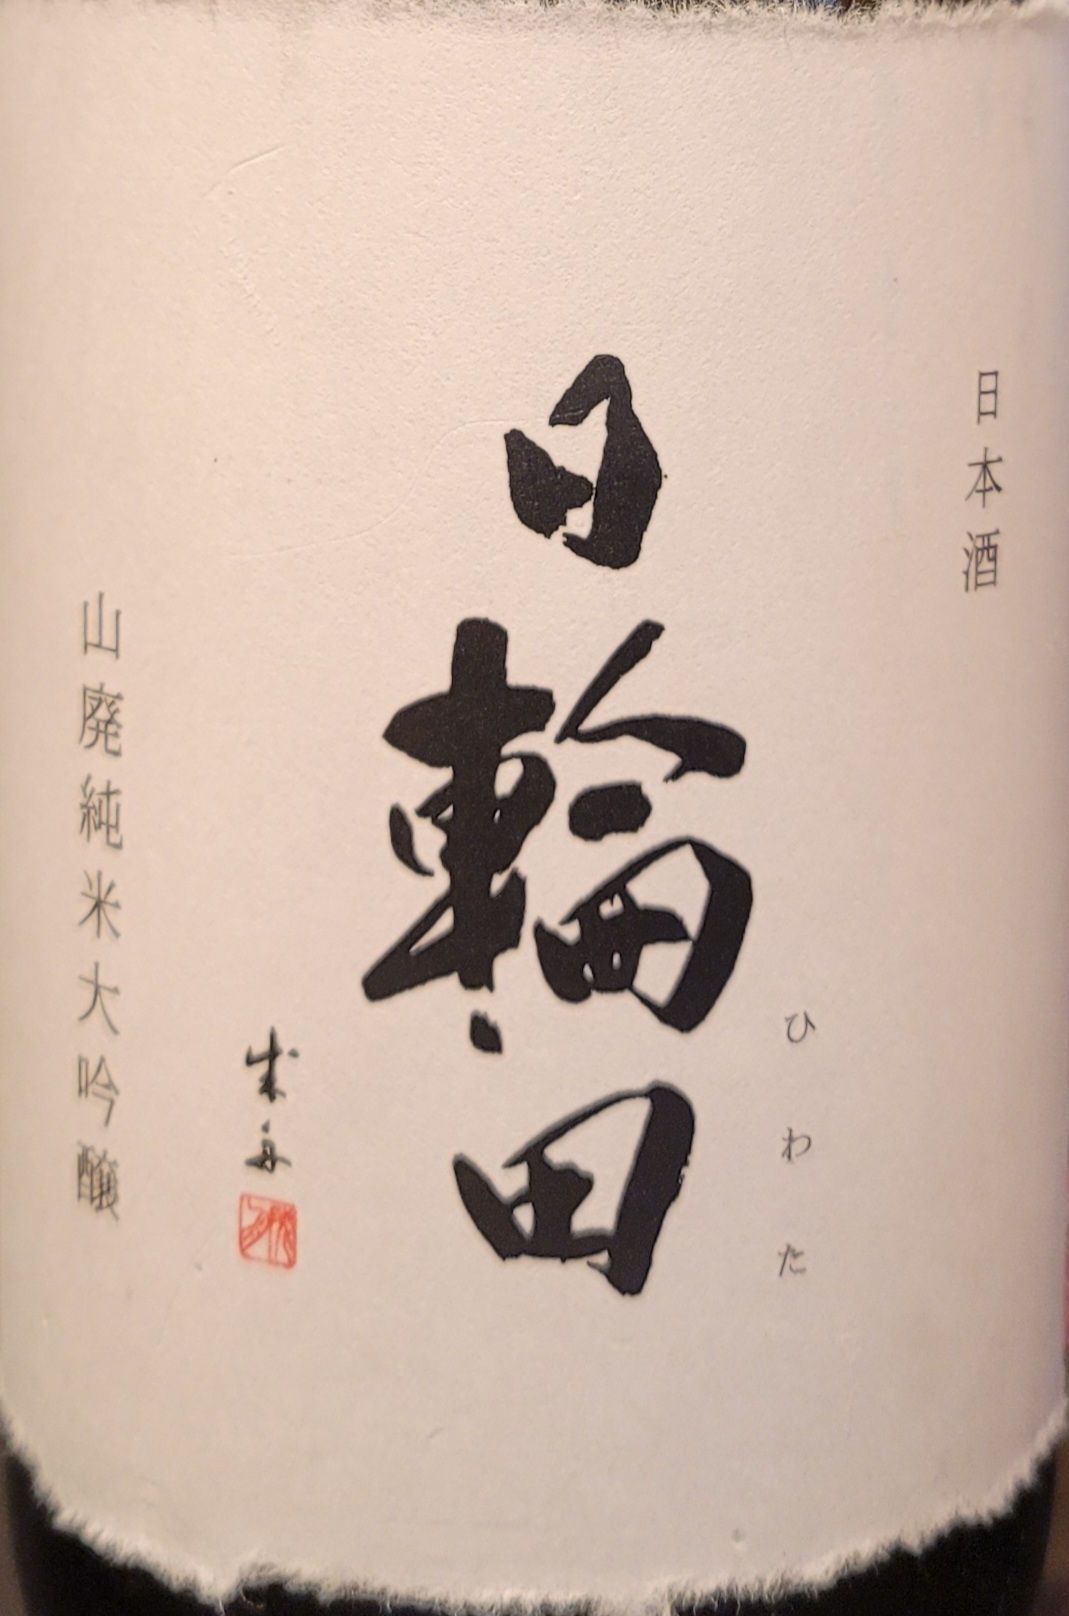 日本酒
日輪田
ひわた
山廃純米大吟醸